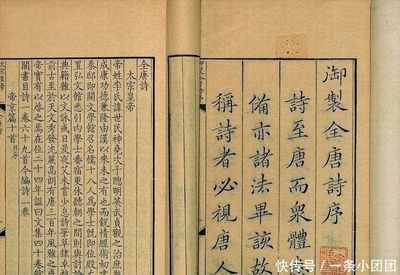 御製全唐詩序
詩至唐而衆體
備亦諸法畢該故
稱詩者必視唐人
全唐詩
太宗皇帝
帝姓李氏諱世民神堯次子聰明英武貞觀之治庶
成康功德兼隆由漢以來未之有也而銳情經術
秦邸即開文學館召名儒十八人爲學士既即位殿
置弘文館悉引内學士番宿更休聽朝之間則與討
典籍雜以文詠或日昃夜艾未嘗少怠詩筆草隸卓
前古至於天文秀發沈麗高朗有唐三百年風雅之
帝實有以啓之焉在位二十四年諡曰文集四十卷
閣書目詩一卷六十九首今編詩一卷
帝京篇十首
快传号 / 一条小团团